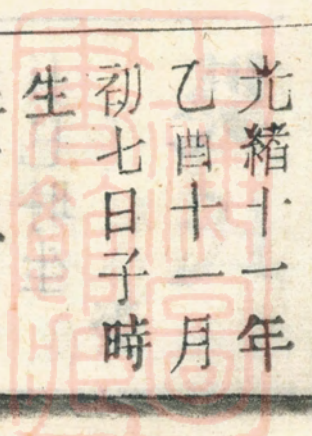 光緒十一年
乙酉十一月
初七日子時
生